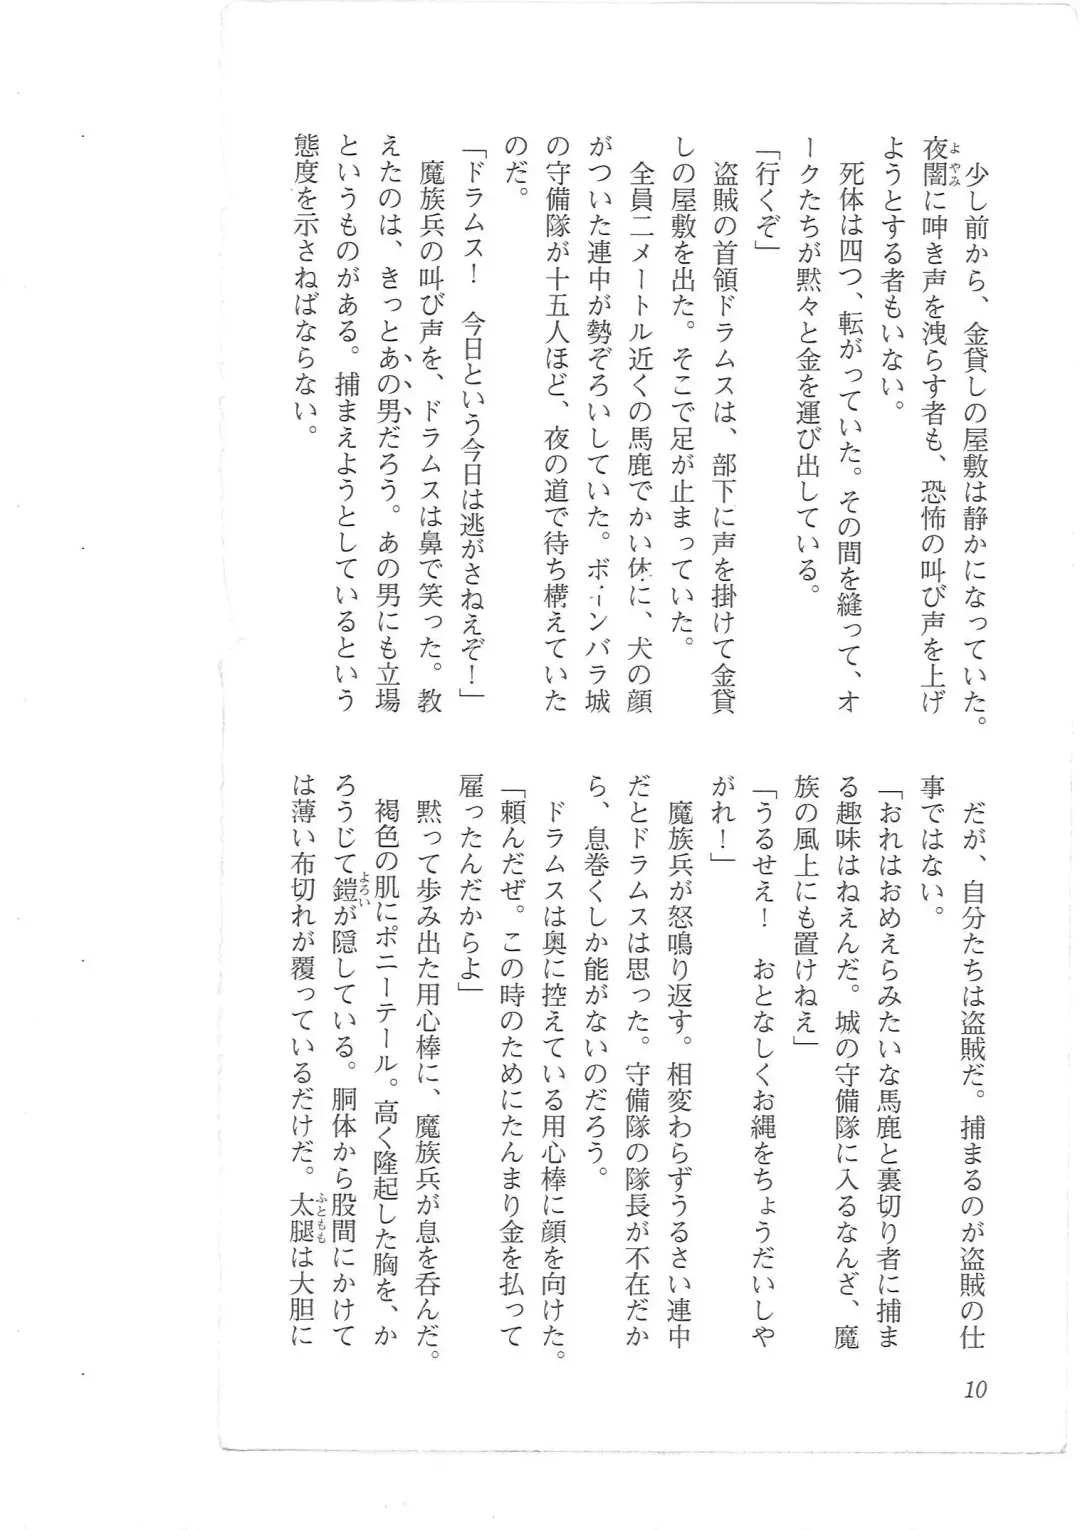 少し前から、金貸しの屋敷は静かになっていた。
夜闇に呻き声を洩らす者も、恐怖の叫び声を上げ
ようとする者もいない。
死体は四つ、転がっていた。その間を縫って、オ
ークたちが黙々と金を運び出している。
「行くぞ」
盗賊の首領ドラムスは、部下に声を掛けて金貸
しの屋敷を出た。そこで足が止まっていた。
全員二メートル近くの馬鹿でかい体に、犬の顔
がついた連中が勢ぞろいしていた。ボインバラ城
の守備隊が十五人ほど、夜の道で待ち構えていた
のだ。
「ドラムス！　今日という今日は逃がさねえぞ！」
魔族兵の叫び声を、ドラムスは鼻で笑った。教
えたのは、きっとあの男だろう。あの男にも立場
というものがある。捕まえようとしているという
態度を示さねばならない。
だが、自分たちは盗賊だ。捕まるのが盗賊の仕
事ではない。
「おれはおめえらみたいな馬鹿と裏切り者に捕ま
る趣味はねえんだ。城の守備隊に入るなんざ、魔
族の風上にも置けねえ」
「うるせえ！　おとなしくお縄をちょうだいしや
がれ！」
魔族兵が怒鳴り返す。相変わらずうるさい連中
だとドラムスは思った。守備隊の隊長が不在だか
ら、息巻くしか能がないのだろう。
ドラムスは奥に控えている用心棒に顔を向けた。
「頼んだぜ。この時のためにたんまり金を払って
雇ったんだからよ」
黙って歩み出た用心棒に、魔族兵が息を呑んだ。
褐色の肌にポニーテール。高く隆起した胸を、か
ろうじて鎧が隠している。胴体から股間にかけて
は薄い布切れが覆っているだけだ。太腿は大胆に
10